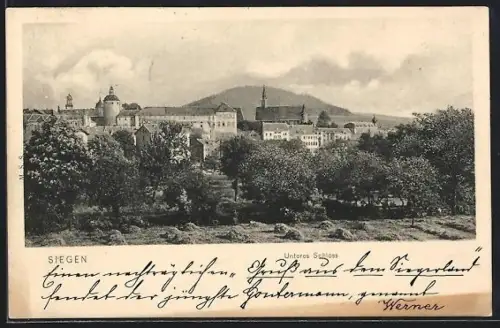 M.S.S.
SIEGEN
Unteres Schloss
Einen nachträglichen „Gruß aus dem Siegerland"
sendet der jüngste Gontermann, genannt
Werner